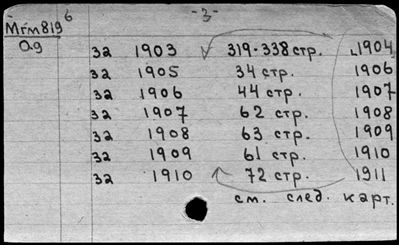 Мгм819 6 -3-
Ag
за 1903 319-338 стр. 1904
за 1905 34 стр. 1906
за 1906 44 стр. 1907
за 1907 62 стр. 1908
за 1908 63 стр. 1909
за 1909 61 стр. 1910
за 1910 72 стр. 1911
см. след. карт.